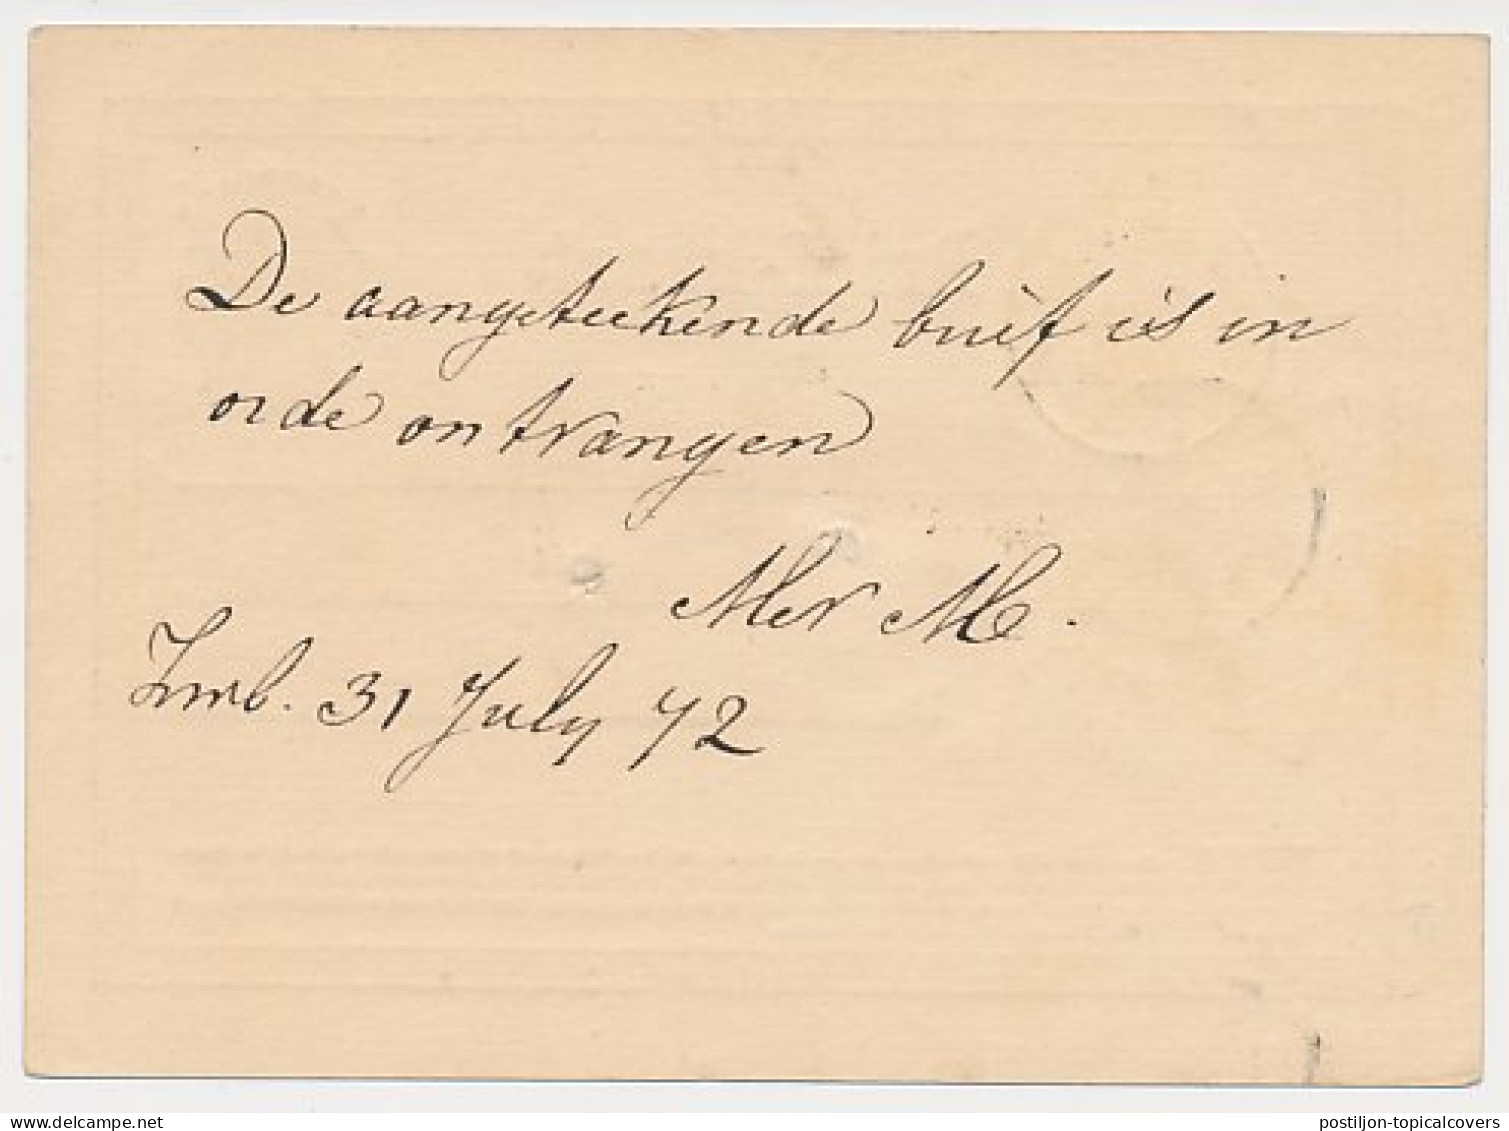 De aangeteekende brief is in
orde ontvangen
31 July 72
postiljon-topicalcovers
delcampe.net